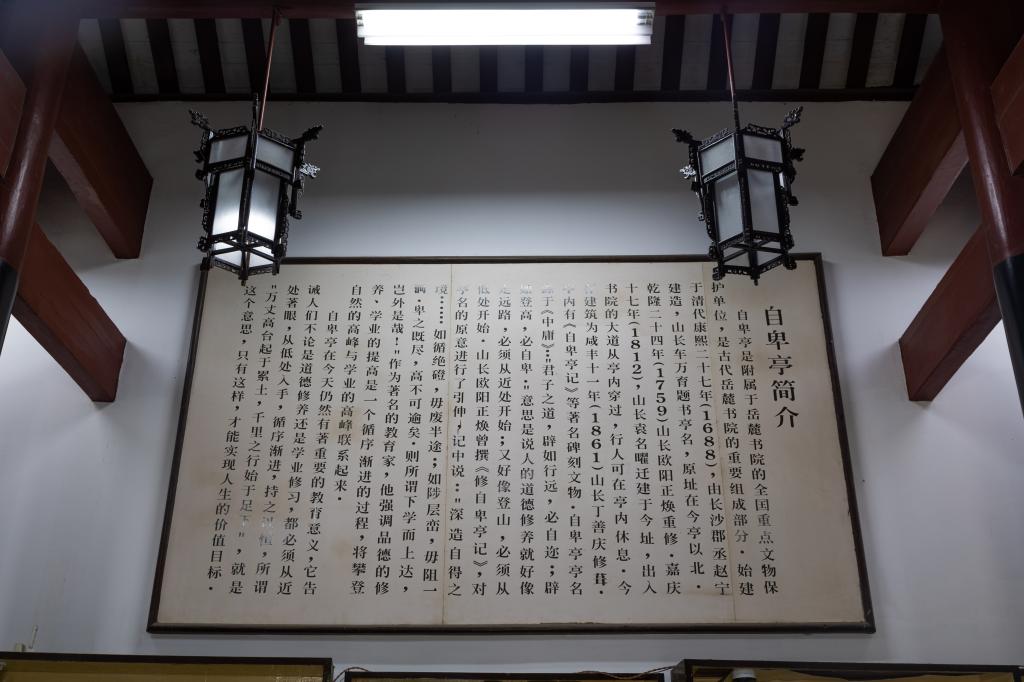 自卑亭简介
自卑亭是附属于岳麓书院的全国重点文物保
护单位，是古代岳麓书院的重要组成部分．始建
于清代康熙二十七年(1688)，由长沙郡丞赵宁
建造，山长车万育题书亭名，原址在今亭以北．
乾隆二十四年(1759)山长欧阳正焕重修．嘉庆
十七年(1812)，山长袁名曜迁建于今址，出入
书院的大道从亭内穿过，行人可在亭内休息．今
建筑为咸丰十一年(1861)山长丁善庆修葺．
亭内有《自卑亭记》等著名碑刻文物．自卑亭亭名
源于《中庸》："君子之道，辟如行远，必自迩；辟
如登高，必自卑．"意思是说人的道德修养就好像
走远路，必须从近处开始；又好像登山，必须从
低处开始．山长欧阳正焕曾撰《修自卑亭记》，对
亭名的原意进行了引伸，记中说："深造自得之
境……如循绝磴，毋废半途；如陟层峦，毋阻一
．卑之既尽，高不可逾矣．则所谓下学而上达，
岂外是哉！"作为著名的教育家，他强调品德的修
养、学业的提高是一个循序渐进的过程，将攀登
自然的高峰与学业的高峰联系起来．
自卑亭在今天仍然有着重要的教育意义，它告
诫人们不论是道德修养还是学业修习，都必须从近
处著眼，从低处入手，循序渐进，持之以恒，所谓
"万丈高台起于累土，千里之行始于足下"，就是
这个意思，只有这样，才能实现人生的价值目标．